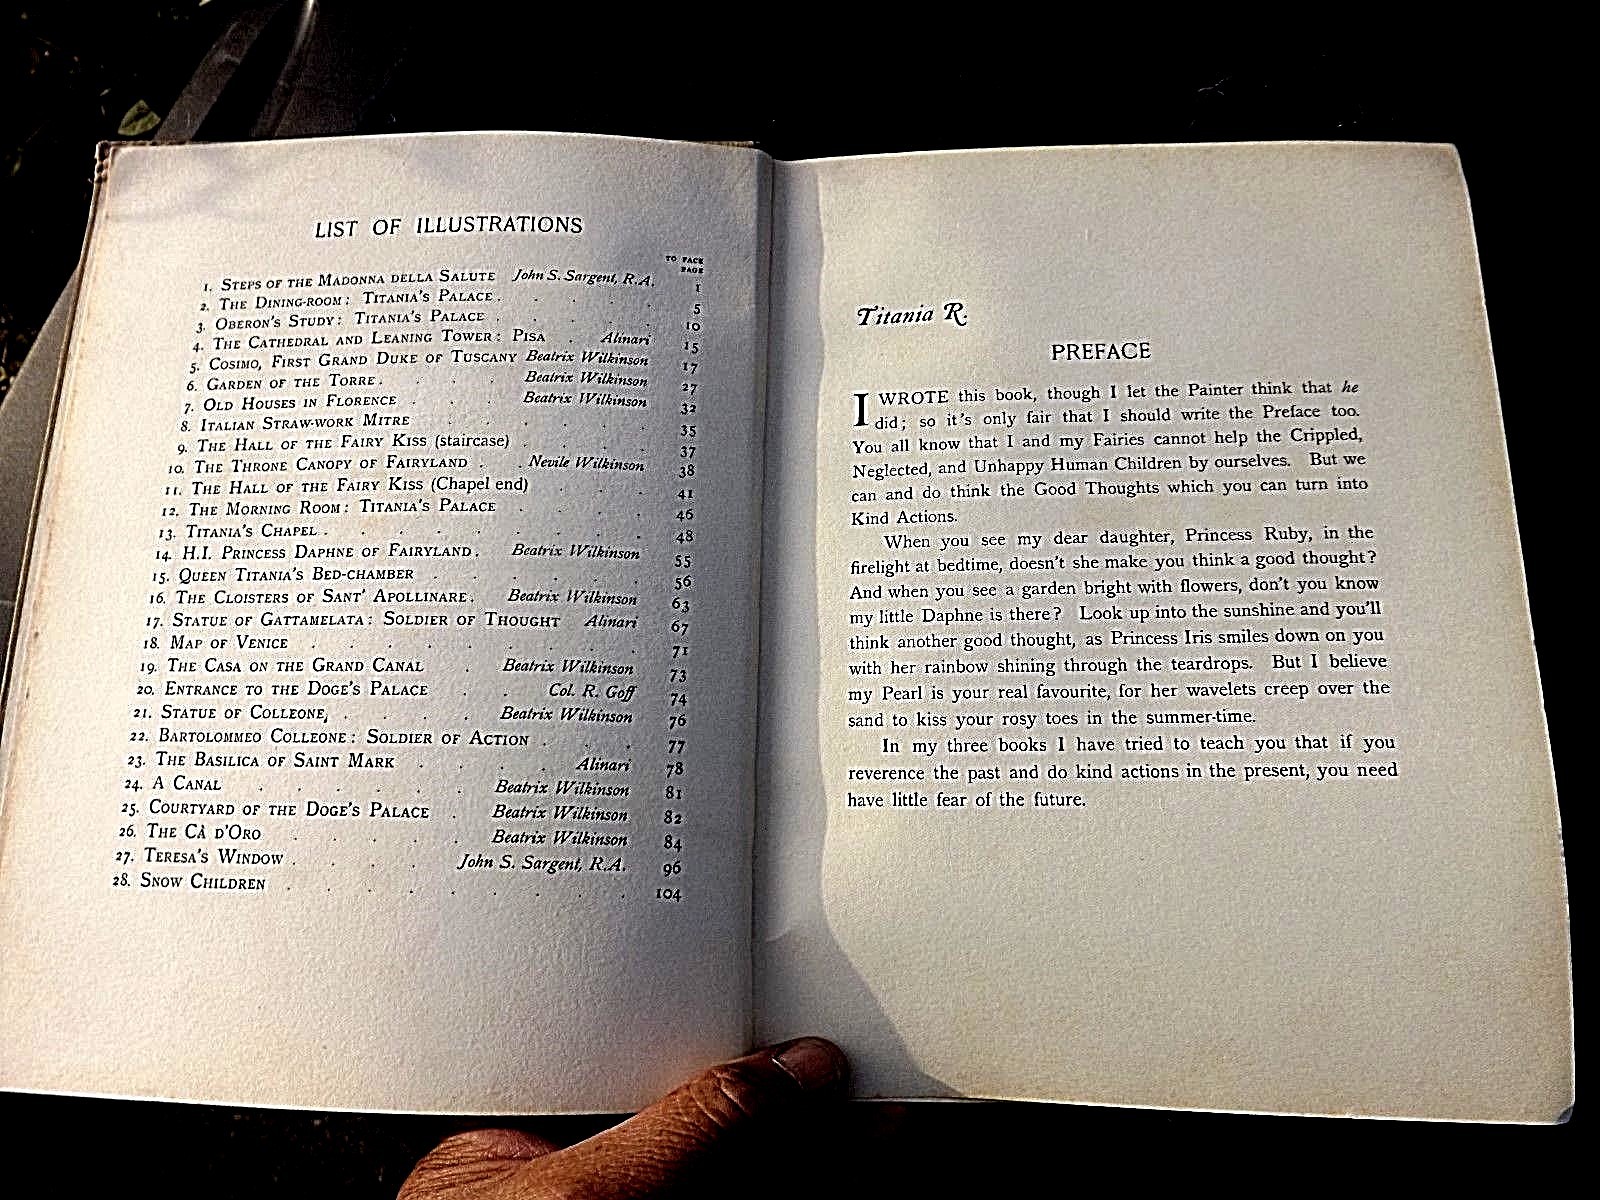 LIST OF ILLUSTRATIONS
TO FACE
PAGE
1. STEPS OF THE MADONNA DELLA SALUTE John S. Sargent, R.A. 1
2. THE DINING-ROOM: TITANIA'S PALACE . . . . . 5
3. OBERON'S STUDY: TITANIA'S PALACE . . . . . 10
4. THE CATHEDRAL AND LEANING TOWER: PISA . Alinari 15
5. COSIMO, FIRST GRAND DUKE OF TUSCANY Beatrix Wilkinson 17
6. GARDEN OF THE TORRE . . . . Beatrix Wilkinson 27
7. OLD HOUSES IN FLORENCE . . . Beatrix Wilkinson 32
8. ITALIAN STRAW-WORK MITRE . . . . . . 35
9. THE HALL OF THE FAIRY KISS (staircase) . . . . 37
10. THE THRONE CANOPY OF FAIRYLAND . . Nevile Wilkinson 38
11. THE HALL OF THE FAIRY KISS (Chapel end) . . . 41
12. THE MORNING ROOM: TITANIA'S PALACE . . . . 46
13. TITANIA'S CHAPEL . . . . . . . . 48
14. H.I. PRINCESS DAPHNE OF FAIRYLAND . Beatrix Wilkinson 55
15. QUEEN TITANIA'S BED-CHAMBER . . . . . . 56
16. THE CLOISTERS OF SANT' APOLLINARE . Beatrix Wilkinson 63
17. STATUE OF GATTAMELATA: SOLDIER OF THOUGHT Alinari 67
18. MAP OF VENICE . . . . . . . . . 71
19. THE CASA ON THE GRAND CANAL . Beatrix Wilkinson 73
20. ENTRANCE TO THE DOGE'S PALACE . . Col. R. Goff 74
21. STATUE OF COLLEONE, . . . . Beatrix Wilkinson 76
22. BARTOLOMMEO COLLEONE: SOLDIER OF ACTION . . . 77
23. THE BASILICA OF SAINT MARK . . . . Alinari 78
24. A CANAL . . . . . . Beatrix Wilkinson 81
25. COURTYARD OF THE DOGE'S PALACE . Beatrix Wilkinson 82
26. THE CÀ D'ORO . . . . . Beatrix Wilkinson 84
27. TERESA'S WINDOW . . . . John S. Sargent, R.A. 96
28. SNOW CHILDREN . . . . . . . 104
Titania R.
PREFACE
I WROTE this book, though I let the Painter think that he
did; so it's only fair that I should write the Preface too.
You all know that I and my Fairies cannot help the Crippled,
Neglected, and Unhappy Human Children by ourselves. But we
can and do think the Good Thoughts which you can turn into
Kind Actions.
When you see my dear daughter, Princess Ruby, in the
firelight at bedtime, doesn't she make you think a good thought?
And when you see a garden bright with flowers, don't you know
my little Daphne is there? Look up into the sunshine and you'll
think another good thought, as Princess Iris smiles down on you
with her rainbow shining through the teardrops. But I believe
my Pearl is your real favourite, for her wavelets creep over the
sand to kiss your rosy toes in the summer-time.
In my three books I have tried to teach you that if you
reverence the past and do kind actions in the present, you need
have little fear of the future.